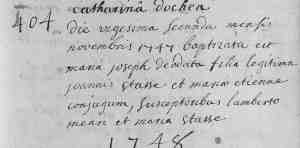 catharina dochea
404. die vigesima secunda mensis
novembris 1747 baptizata est
maria joseph deodata filia legitima
joannis stasse et mariæ etienne
conjugum, susceptoribus lamberto
mean et maria stasse
1748